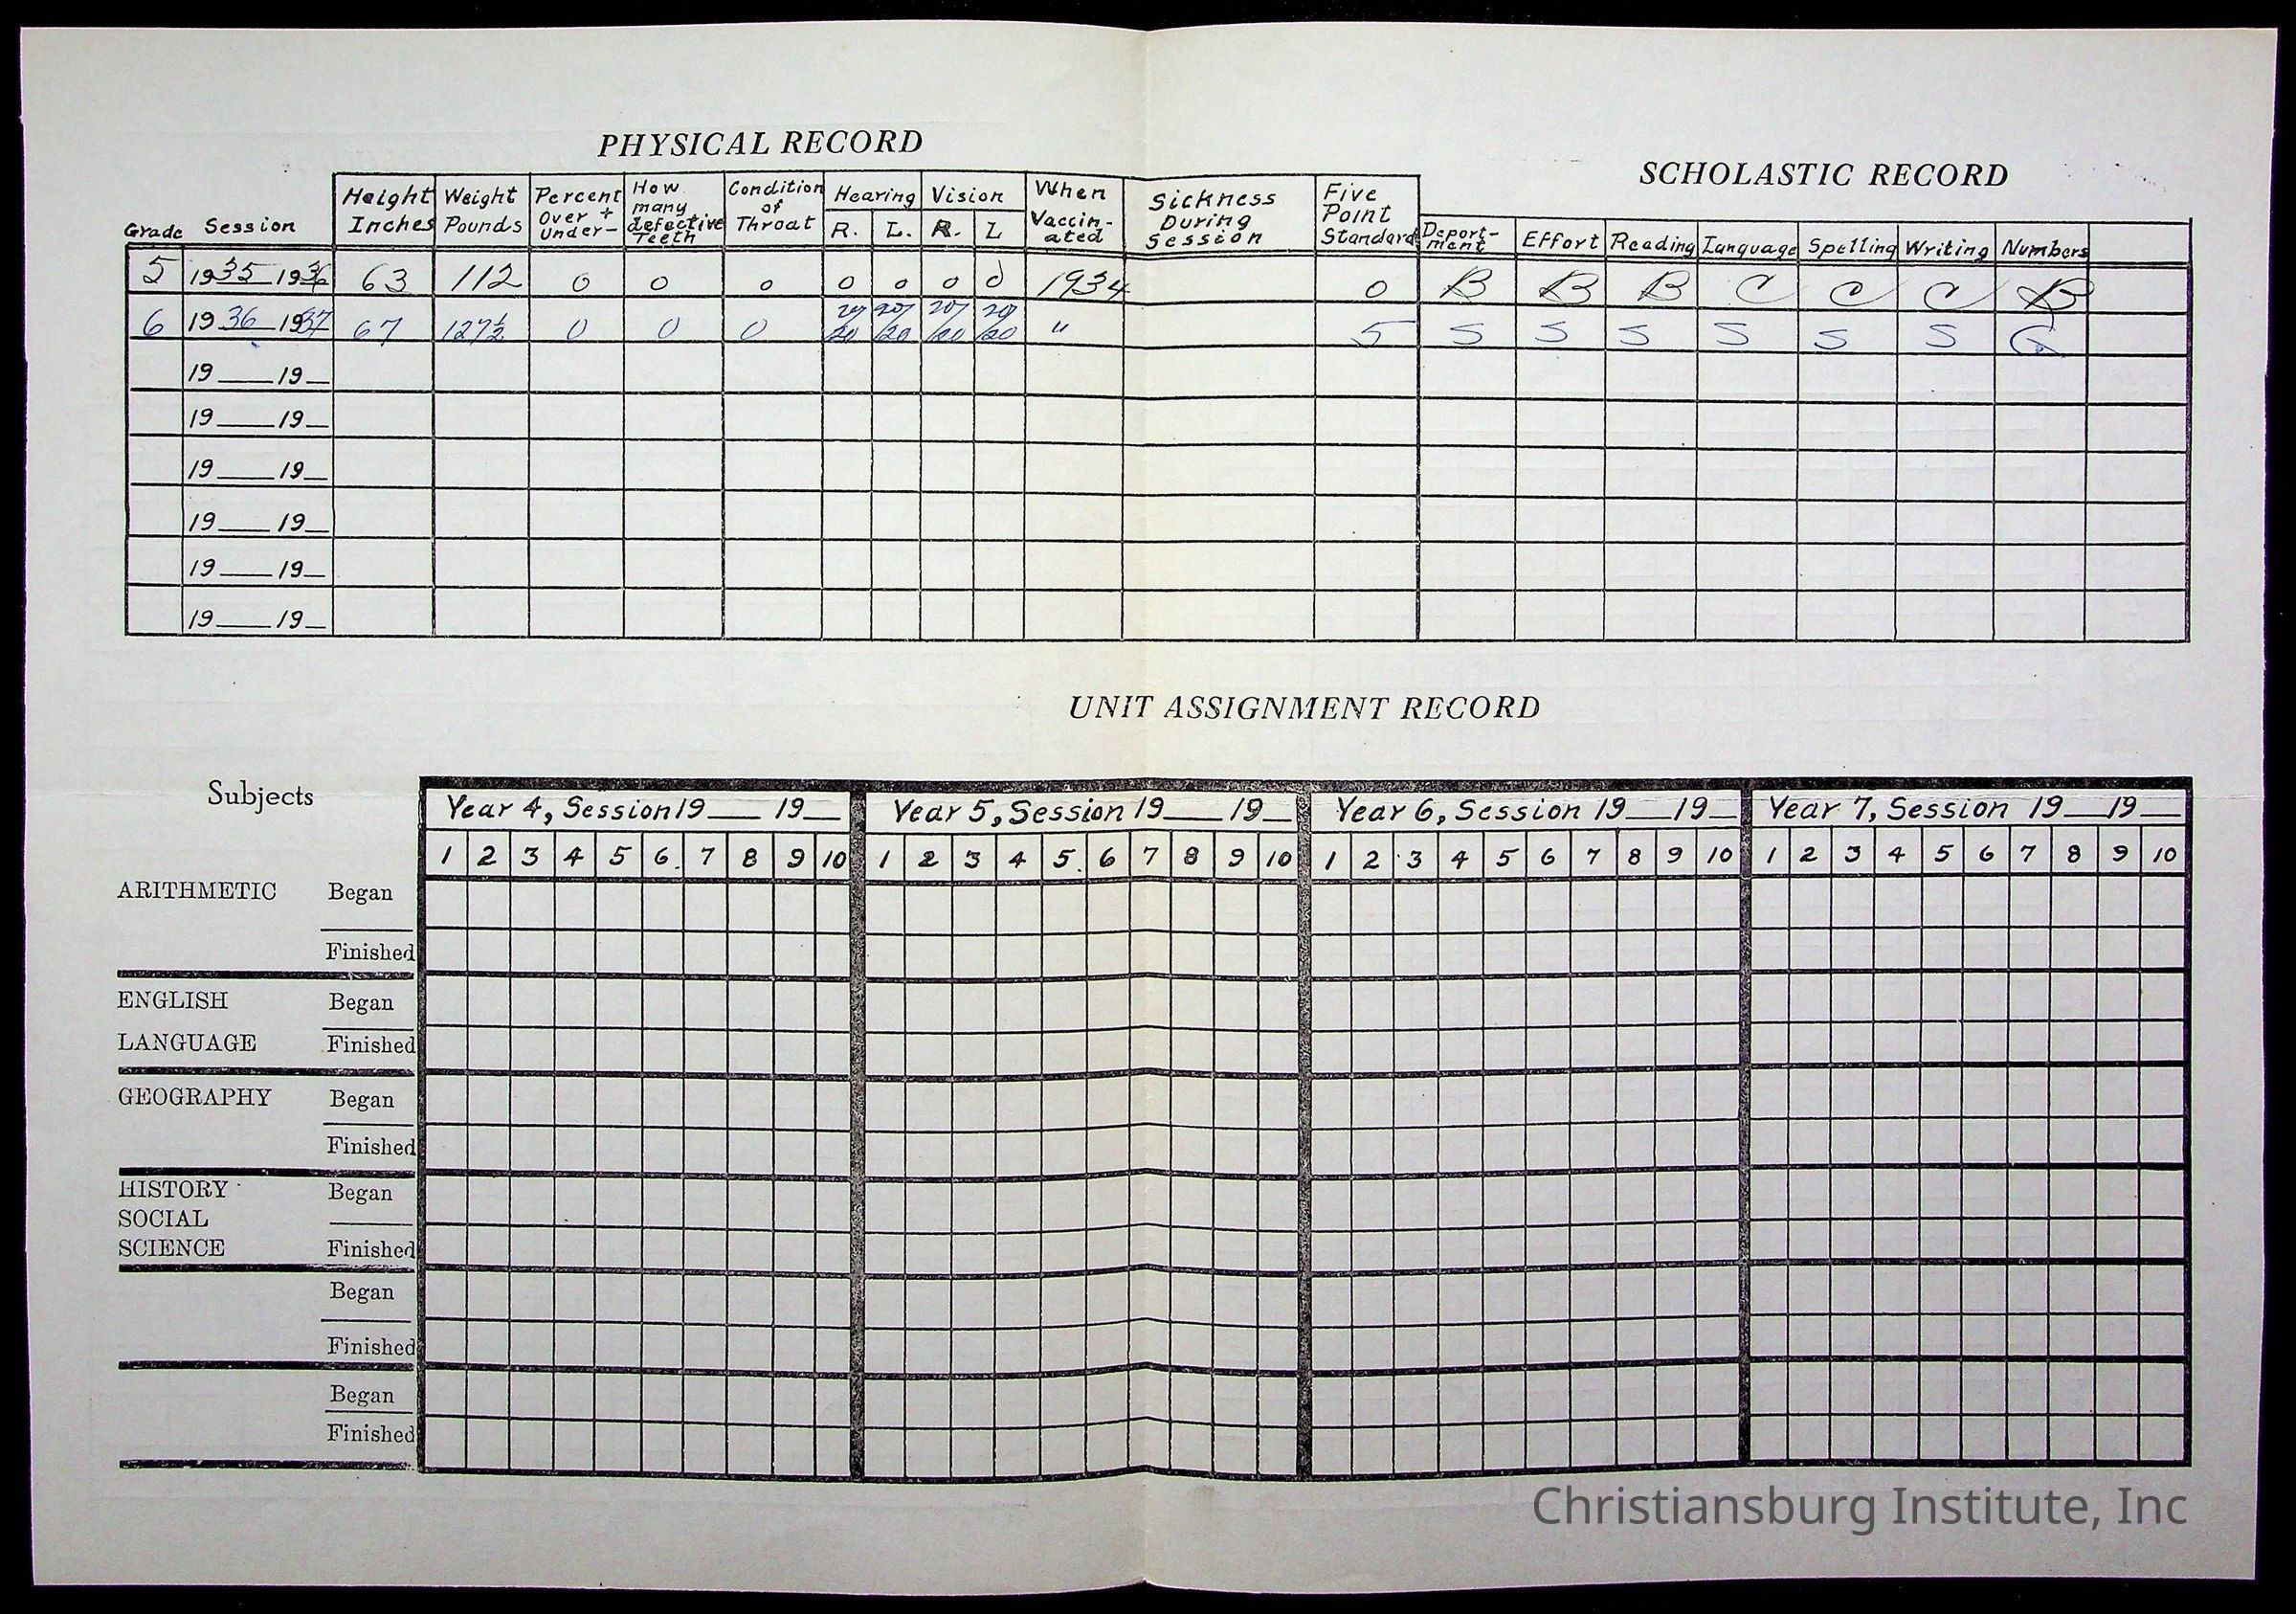 PHYSICAL RECORD
SCHOLASTIC RECORD
Grade Session Height Inches Weight Pounds Percent Over + Under- How many defective Teeth Condition of Throat Hearing R. L. Vision R. L When Vaccin-ated Sickness During Session Five Point Standard Deport-ment Effort Reading Language Spelling Writing Numbers
5 1935 1936 63 112 0 0 0 0 0 0 0 1934 0 B B B C C C B
6 1936 1937 67 127½ 0 0 0 20/20 20/20 20/20 20/20 " 5 S S S S S S
19___19_
19___19_
19___19_
19___19_
19___19_
19___19_
UNIT ASSIGNMENT RECORD
Subjects
Year 4, Session 19___ 19__ Year 5, Session 19___ 19__ Year 6, Session 19___19__ Year 7, Session 19___19__
1 2 3 4 5 6 7 8 9 10 1 2 3 4 5 6 7 8 9 10 1 2 3 4 5 6 7 8 9 10 1 2 3 4 5 6 7 8 9 10
ARITHMETIC Began
Finished
ENGLISH Began
LANGUAGE Finished
GEOGRAPHY Began
Finished
HISTORY Began
SOCIAL
SCIENCE Finished
Began
Finished
Began
Finished
Christiansburg Institute, Inc